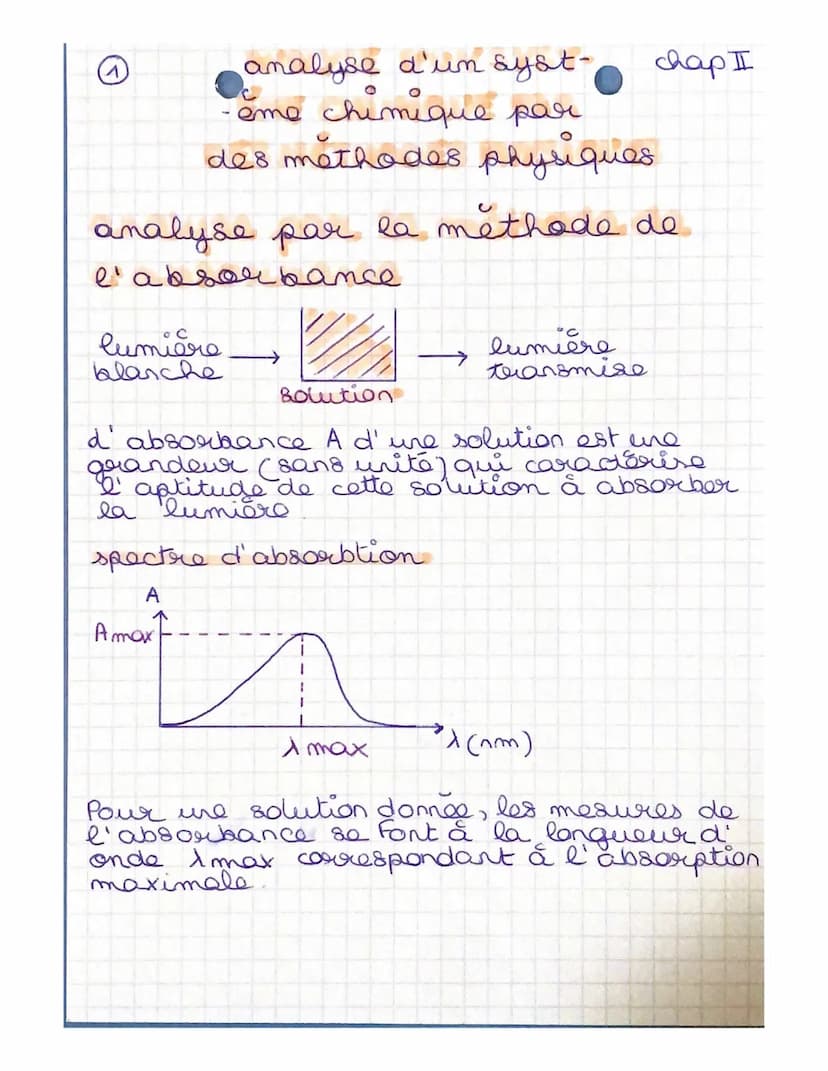 ① analyse d'un syst- chap II
-ème chimique par
des méthodes physiques
analyse par la méthode de
l'absorbance
lumière blanche → solution → lumière transmise
d'absorbance A d'une solution est une
grandeur (sans unité) qui caractérise
l'aptitude de cette solution à absorber
la lumière
spectre d'absorbtion
A
A max
λ max
λ (nm)
Pour une solution donnée, les mesures de
l'absorbance se font à la longueur d'
onde λmax correspondant à l'absorption
maximale.